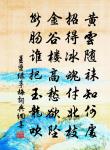 黄雲随袜知何處
招得冰魂付北枝
金谷樓高愁欲墜
斷腸誰把玉龍吹